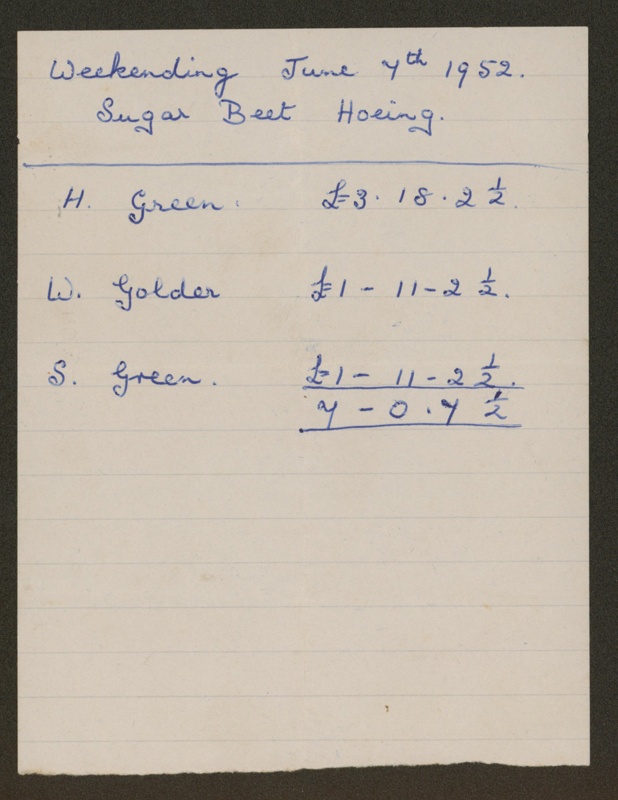 Weekending June 7th 1952.
Sugar Beet Hoeing.
H. Green. £3. 18. 2 ½.
W. Golder £1 - 11 - 2 ½.
S. Green. £1 - 11 - 2 ½.
7 - 0. 7 ½